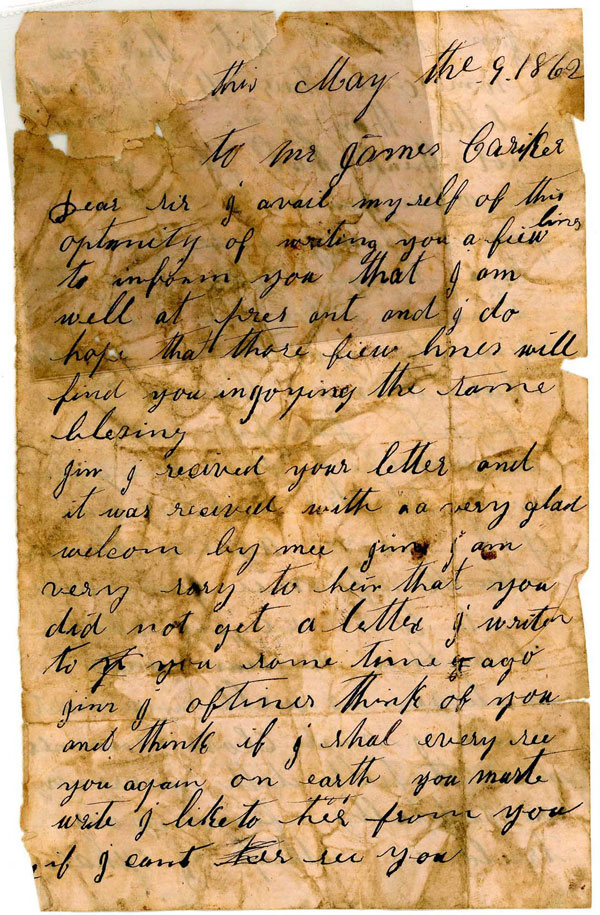 this May the 9. 1862
to mr James Cariker
Dear sir J avail myself of this
optunity of writing you a fiew lines
to inform you that J am
well at pres ant and J do
hope that those fiew lines will
find you ingoying the same
blesing
Jim J recived your letter and
it was recived with aa very glad
welcom by mee Jim J am
very sory to heir that you
did not get a letter J writen
to you some time ago
Jim J oftines think of you
and think if J shal every see
you again on earth you muste
write J like to her from you
if J cant see you